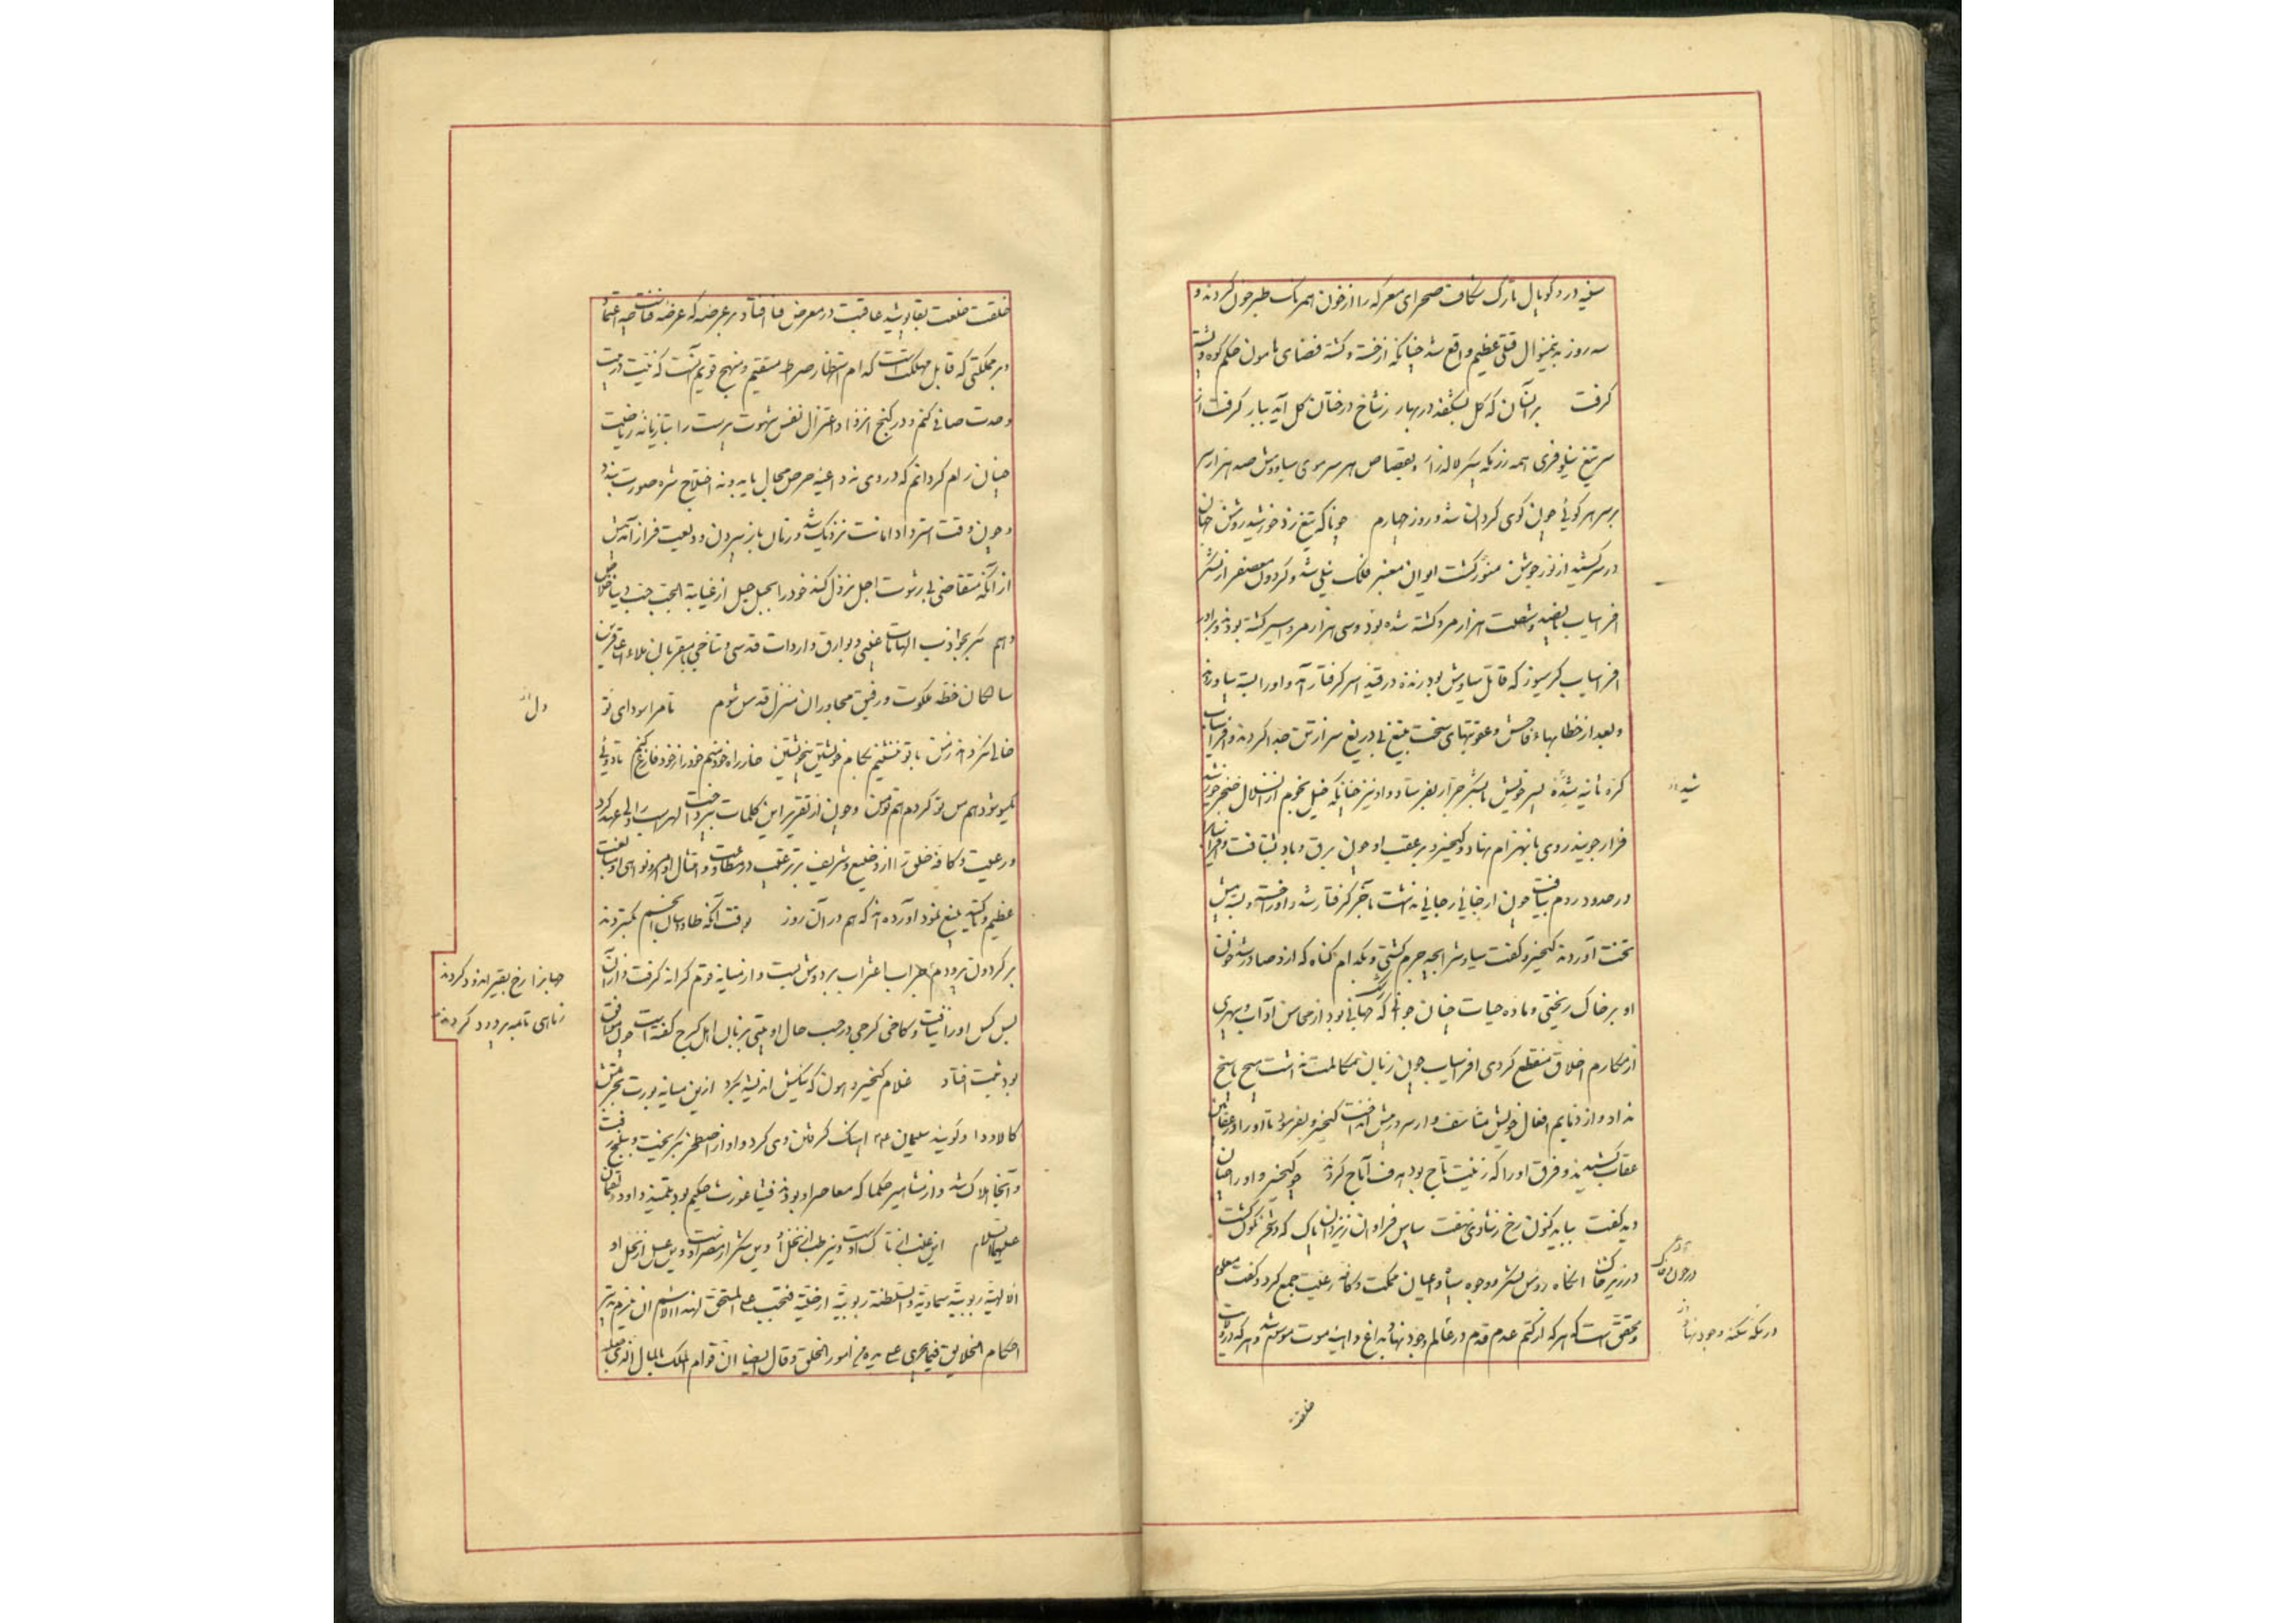 سینه در و کوپال تارک شکاف صحرای معرکه را از خون همرنک طبرخون کردند و
سه روز بدینمنوال قتلی عظیم واقع شد چنانکه از خسته و کشته فضای هامون حکم کوه و پشته
کرفت بر آن که کل بشکفد در بهار ز شاخ درختان کل آید ببار کرفت از
سر تیغ نیلوفری همه رزمکه لاله زار و بقصاص هر سر موی سیاووش صد هزار سر
بر سر هر کوئی چون کوی کردان شد و روز چهارم چو تاکه تیغ زد خورشید روشن جهان
در سر کشید از نور خویش منور کشت ایوان فلک نیلی شد و کردون معصفر از لشکر
افراسیاب و شصت هزار مرد کشته شده بود و سی هزار مرد اسیر کشته بودند و برادر
افراسیاب کرسیوز که قاتل سیاوش بود زنده در قید اسر کرفتار آمد و او را بسته بیاوردند
و بعد از خطابهاء فاحش و عقوبتهای سخت بتیغ بی دریغ سر از تنش جدا کردند و افراسیاب
کره ثانیه شیده پسر خویش با لشکر جرار بفرستاد و او نیز چنانکه خیل نجوم از انسلال خنجر خورشید
فرار جویند روی بانهزام نهاد و کیخسرو بر عقب او چون برق و باد بشتافت و افراسیاب
در حدود روم بیافت چون از جائی رجائی نداشت بآخر کرفتار شد و او را خسته و بسته پیش
تخت آوردند کیخسرو کفت سیاوش را بچه جرم کشتی و بکدام کناه که ازو صادر شد خون
او بر خاک ریختی و ماده حیات چنان جوانی که جهانی بود از محاسن آداب و بهری
از مکارم اخلاق منقطع کردی افراسیاب چون زبان مکالمت نداشت هیچ پاسخ
نداد و از ذمایم افعال خویش متاسف وار سر در پیش انداخت کیخسرو بفرمود تا او را در عقابین
عقاب کشیدند و فرق او را که زینت تاج بود هدف آماج کردند چو کیخسرو او را چنان
دید کفت بباید کنون رخ ز شادی نهفت سپاس فراوان ز یزدان پاک که دشمن نکون کشت
در زیر خاک آنکاه روس لشکر و وجوه سپاه و اعیان مملکت و کافه رعیت جمع کرد و کفت معلوم
و محقق است که هر که از کتم عدم قدم در عالم وجود نهاد بداغ و اینه موت موسم شد و هر که در ولادت
خلقت
شیده
در خون خاک
در تنکه شکنه وجود نهاد
خلقت خلعت بقا پوشید عاقبت در معرض فنا افتاد بر عرضه که عرضه فناست چه اعتماد
و بر مملکتی که قابل مهلکت است کدام استظهار صراط مستقیم و منهج قویم آنست که نیت درست
وحدت صافی کنم و در کنج انزوا و اعتزال نفس شهوت پرست را بتازیانه ریاضت
چنان رام کردانم که در وی نه داعیه حرص مجال یابد و نه اختلاج شره صورت بندد
و چون وقت استرداد امانت نزدیک شد و زمان باز سپردن ودیعت فراز آمد پیش
از آنکه متقاضی بی رشوت اجل نزدل کند خود را بحبل حیل از غیابة الجب جنب دنیا خلاص
دهم بجواذب الهامات غیبی و بوارق واردات قدسی متاخی با مقربان ملاء اعلی قرین
ساکنان خطه ملکوت و رفیق مجاوران منزل قدس شوم تا مرا سودای تو
خالی نکرداند ز من با تو ننشینم بکام خویشتن بیخویشتن خار راه خود منم خود را ز خود فارغ کنم تا دوئی
یکسو شود هم من تو کردم هم تو من و چون از تقریر این کلمات بپرداخت لهراسب را ولی عهد کرد
و رعیت و کافه خلق را از وضیع و شریف بر ترغیب در مطاوعت و امتثال اوامر و نواهی او مبالغت
عظیم و تاکید بلیغ نمود آورده اند که هم در آن روز بوقت آنکه طاوسان انجم بکستردند
بر کردون پر و دم جراب اغتراب بر دوش بست و از میانه قوم کرانه کرفت و از آن
پس کس او را نیافت و کافی کرجی در حسب حال او بیتی بزبان اهل کرج کفته است چون موافق
بود ثبت افتاد غلام کیخسرو هون که نیکیش اندیشه بکرد ازین میانه بورت بجرمش
کالاددا و کویند سلیمان ع م اهنک کرفتن وی کرد و او از اصطخر بکریخت و ببلخ رفت
و آنجا هلاک شد و از مشاهیر حکما که معاصر او بودند فیثاغورث حکیم بود تلمیذ داود و لقمان
علیهما السلام این عنب انی تاک اوست و نیز طب انی نخل او وین شکر از مصر اوست و وین عسل از نخل او
الالهیة ربوبیة سماویة و السلطنة ربوبیة ارضیة فیجب علی المستحق لهذا الاسم ان یلزم تدبیر
احکام الخلایق فیما یجری علی یدیه من امور الخلق و قال ایضا ان قوام الملک بالمال الذی
دل
جهانرا رخ بقیر اندود کردند